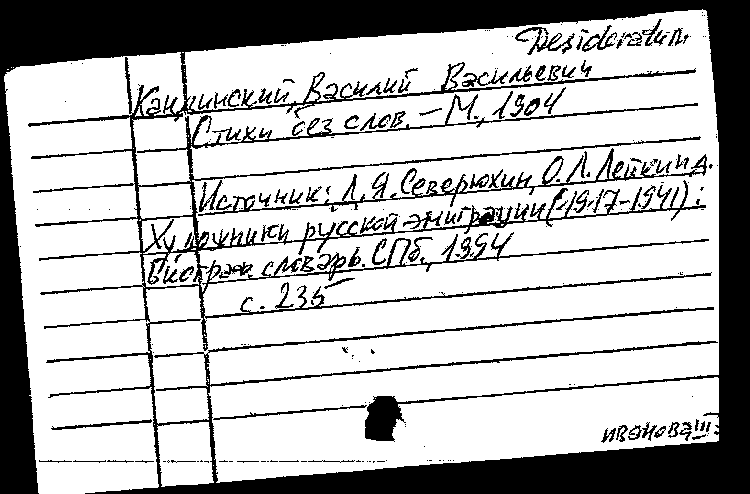 Desideratum
Кандинский, Василий Васильевич
Стихи без слов. – М., 1904
Источник: Д. Я. Северюхин, О. Л. Лейкинд.
Художники русской эмиграции (1917–1941):
Биограф. словарь. СПб., 1994
с. 235